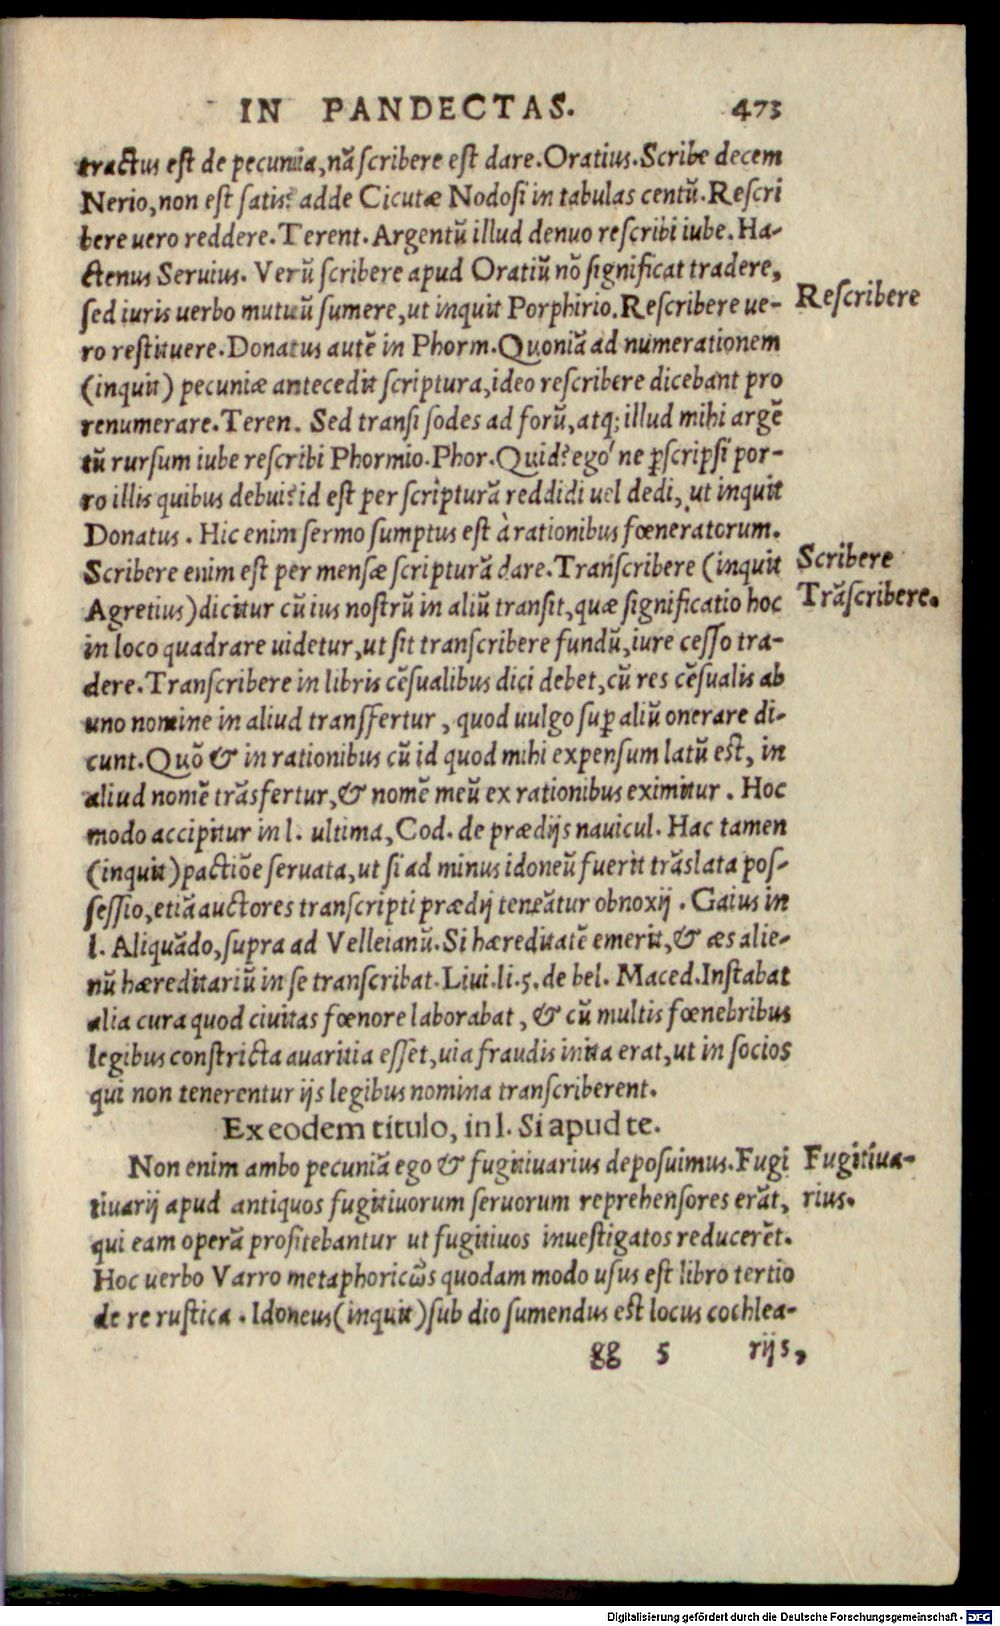 IN PANDECTAS. 473
tractus est de pecunia, nã scribere est dare. Oratius. Scribe decem
Nerio, non est satis? adde Cicutæ Nodosi in tabulas centũ. Rescri
bere uero reddere. Terent. Argentũ illud denuo rescribi iube. Ha-
ctenus Seruius. Verũ scribere apud Oratiũ nõ significat tradere,
sed iuris uerbo mutuũ sumere, ut inquit Porphirio. Rescribere ue-
Rescribere
ro restituere. Donatus autẽ in Phorm. Quoniã ad numerationem
(inquit) pecuniæ antecedit scriptura, ideo rescribere dicebant pro
renumerare. Teren. Sed transi sodes ad forũ, atq; illud mihi argẽ
tũ rursum iube rescribi Phormio. Phor. Quid? ego' ne ꝑscripsi por-
ro illis quibus debui? id est per scripturã reddidi uel dedi, ut inquit
Donatus. Hic enim sermo sumptus est à rationibus fœneratorum.
Scribere enim est per mensæ scripturã dare. Transcribere (inquit
Scribere
Agretius) dicitur cũ ius nostrũ in aliũ transit, quæ significatio hoc
Trãscribere.
in loco quadrare uidetur, ut sit transcribere fundũ, iure cesso tra-
dere. Transcribere in libris cẽsualibus dici debet, cũ res cẽsualis ab
uno nomine in aliud transfertur, quod uulgo suꝑ aliũ onerare di-
cunt. Quõ & in rationibus cũ id quod mihi expensum latũ est, in
aliud nomẽ trãsfertur, & nomẽ meũ ex rationibus eximitur. Hoc
modo accipitur in l. ultima, Cod. de prædijs nauicul. Hac tamen
(inquit) pactiõe seruata, ut si ad minus idoneũ fuerit trãslata pos-
sessio, etiã auctores transcripti prædij teneãtur obnoxij. Gaius in
l. Aliquãdo, supra ad Velleianũ. Si hæreditatẽ emerit, & æs alie-
nũ hæreditariũ in se transcribat. Liui. li. 5. de bel. Maced. Instabat
alia cura quod ciuitas fœnore laborabat, & cũ multis fœnebribus
legibus constricta auaritia esset, uia fraudis inita erat, ut in socios
qui non tenerentur ijs legibus nomina transcriberent.
Ex eodem titulo, in l. Si apud te.
Non enim ambo pecuniã ego & fugitiuarius deposuimus. Fugi
Fugitiua-
tiuarij apud antiquos fugitiuorum seruorum reprehensores erãt,
rius.
qui eam operã profitebantur ut fugitiuos inuestigatos reducerẽt.
Hoc uerbo Varro metaphoricῶs quodam modo usus est libro tertio
de re rustica. Idoneus (inquit) sub dio sumendus est locus cochlea-
gg 5 rijs,
Digitalisierung gefördert durch die Deutsche Forschungsgemeinschaft - DFG